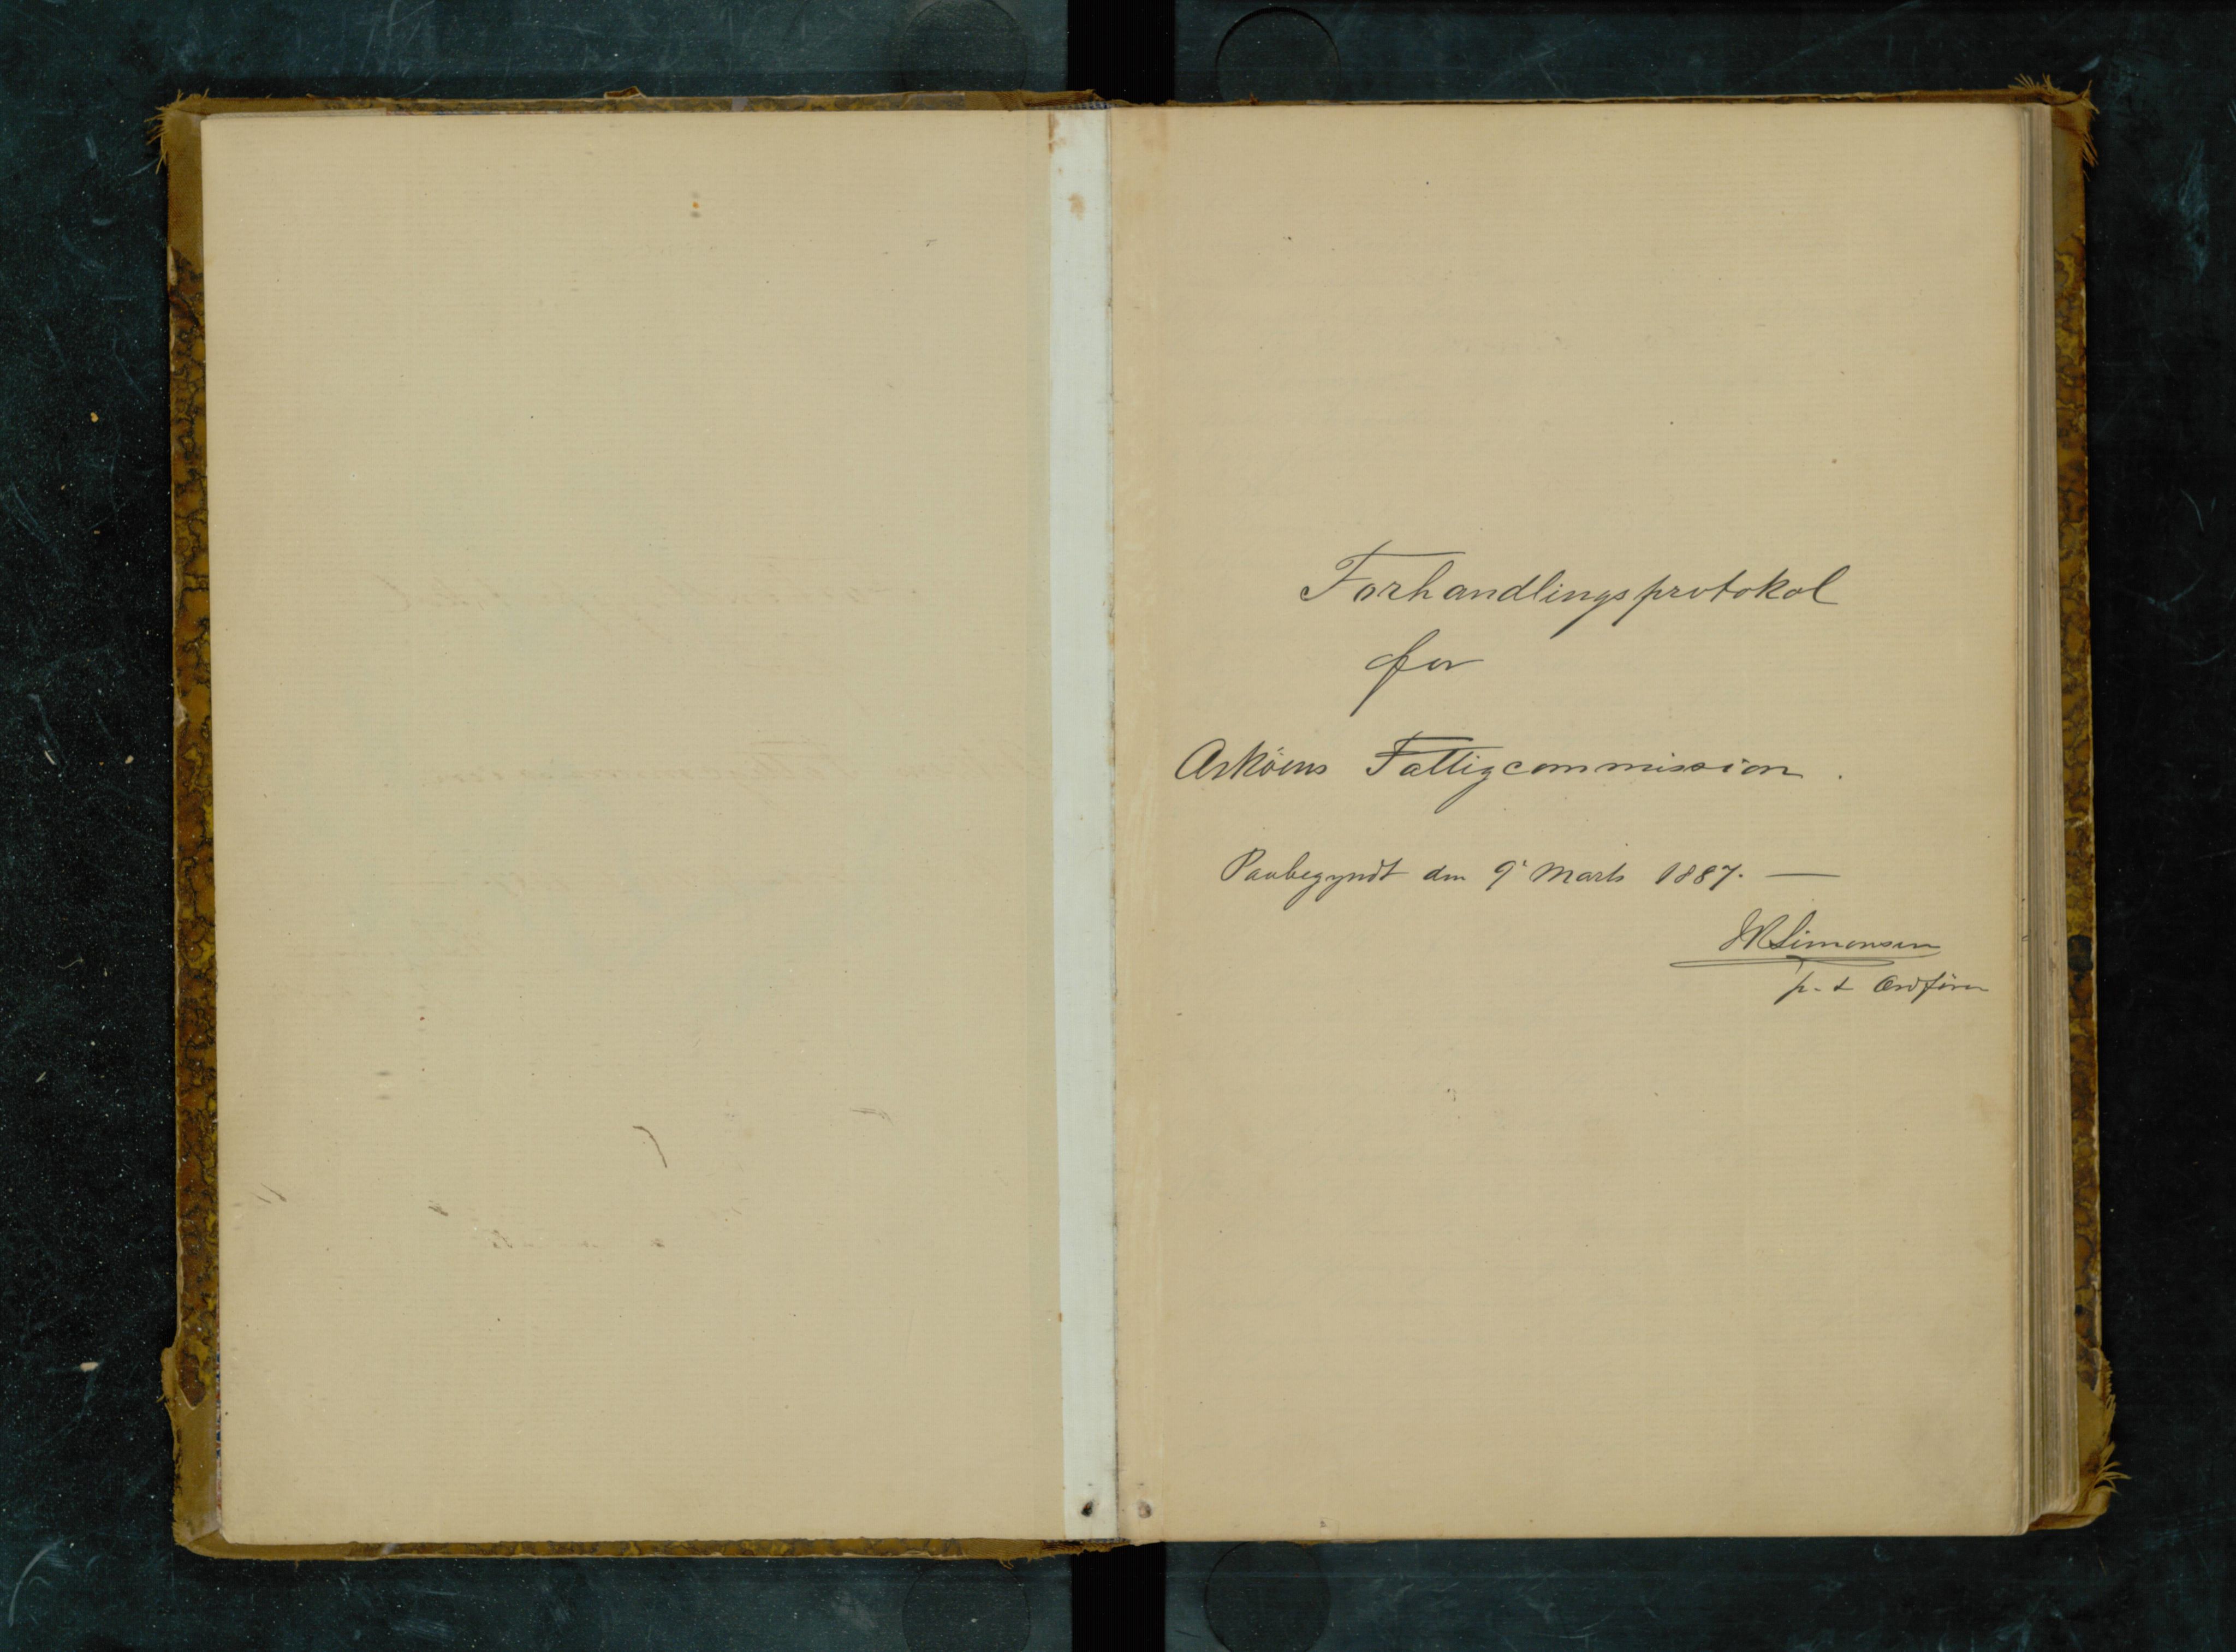 Forhandlingsprotokol
for
Askøens Fattigcommission.
Paabegyndt den 9' Marts 1887. —
JR Simonsen
p. t Ordfører